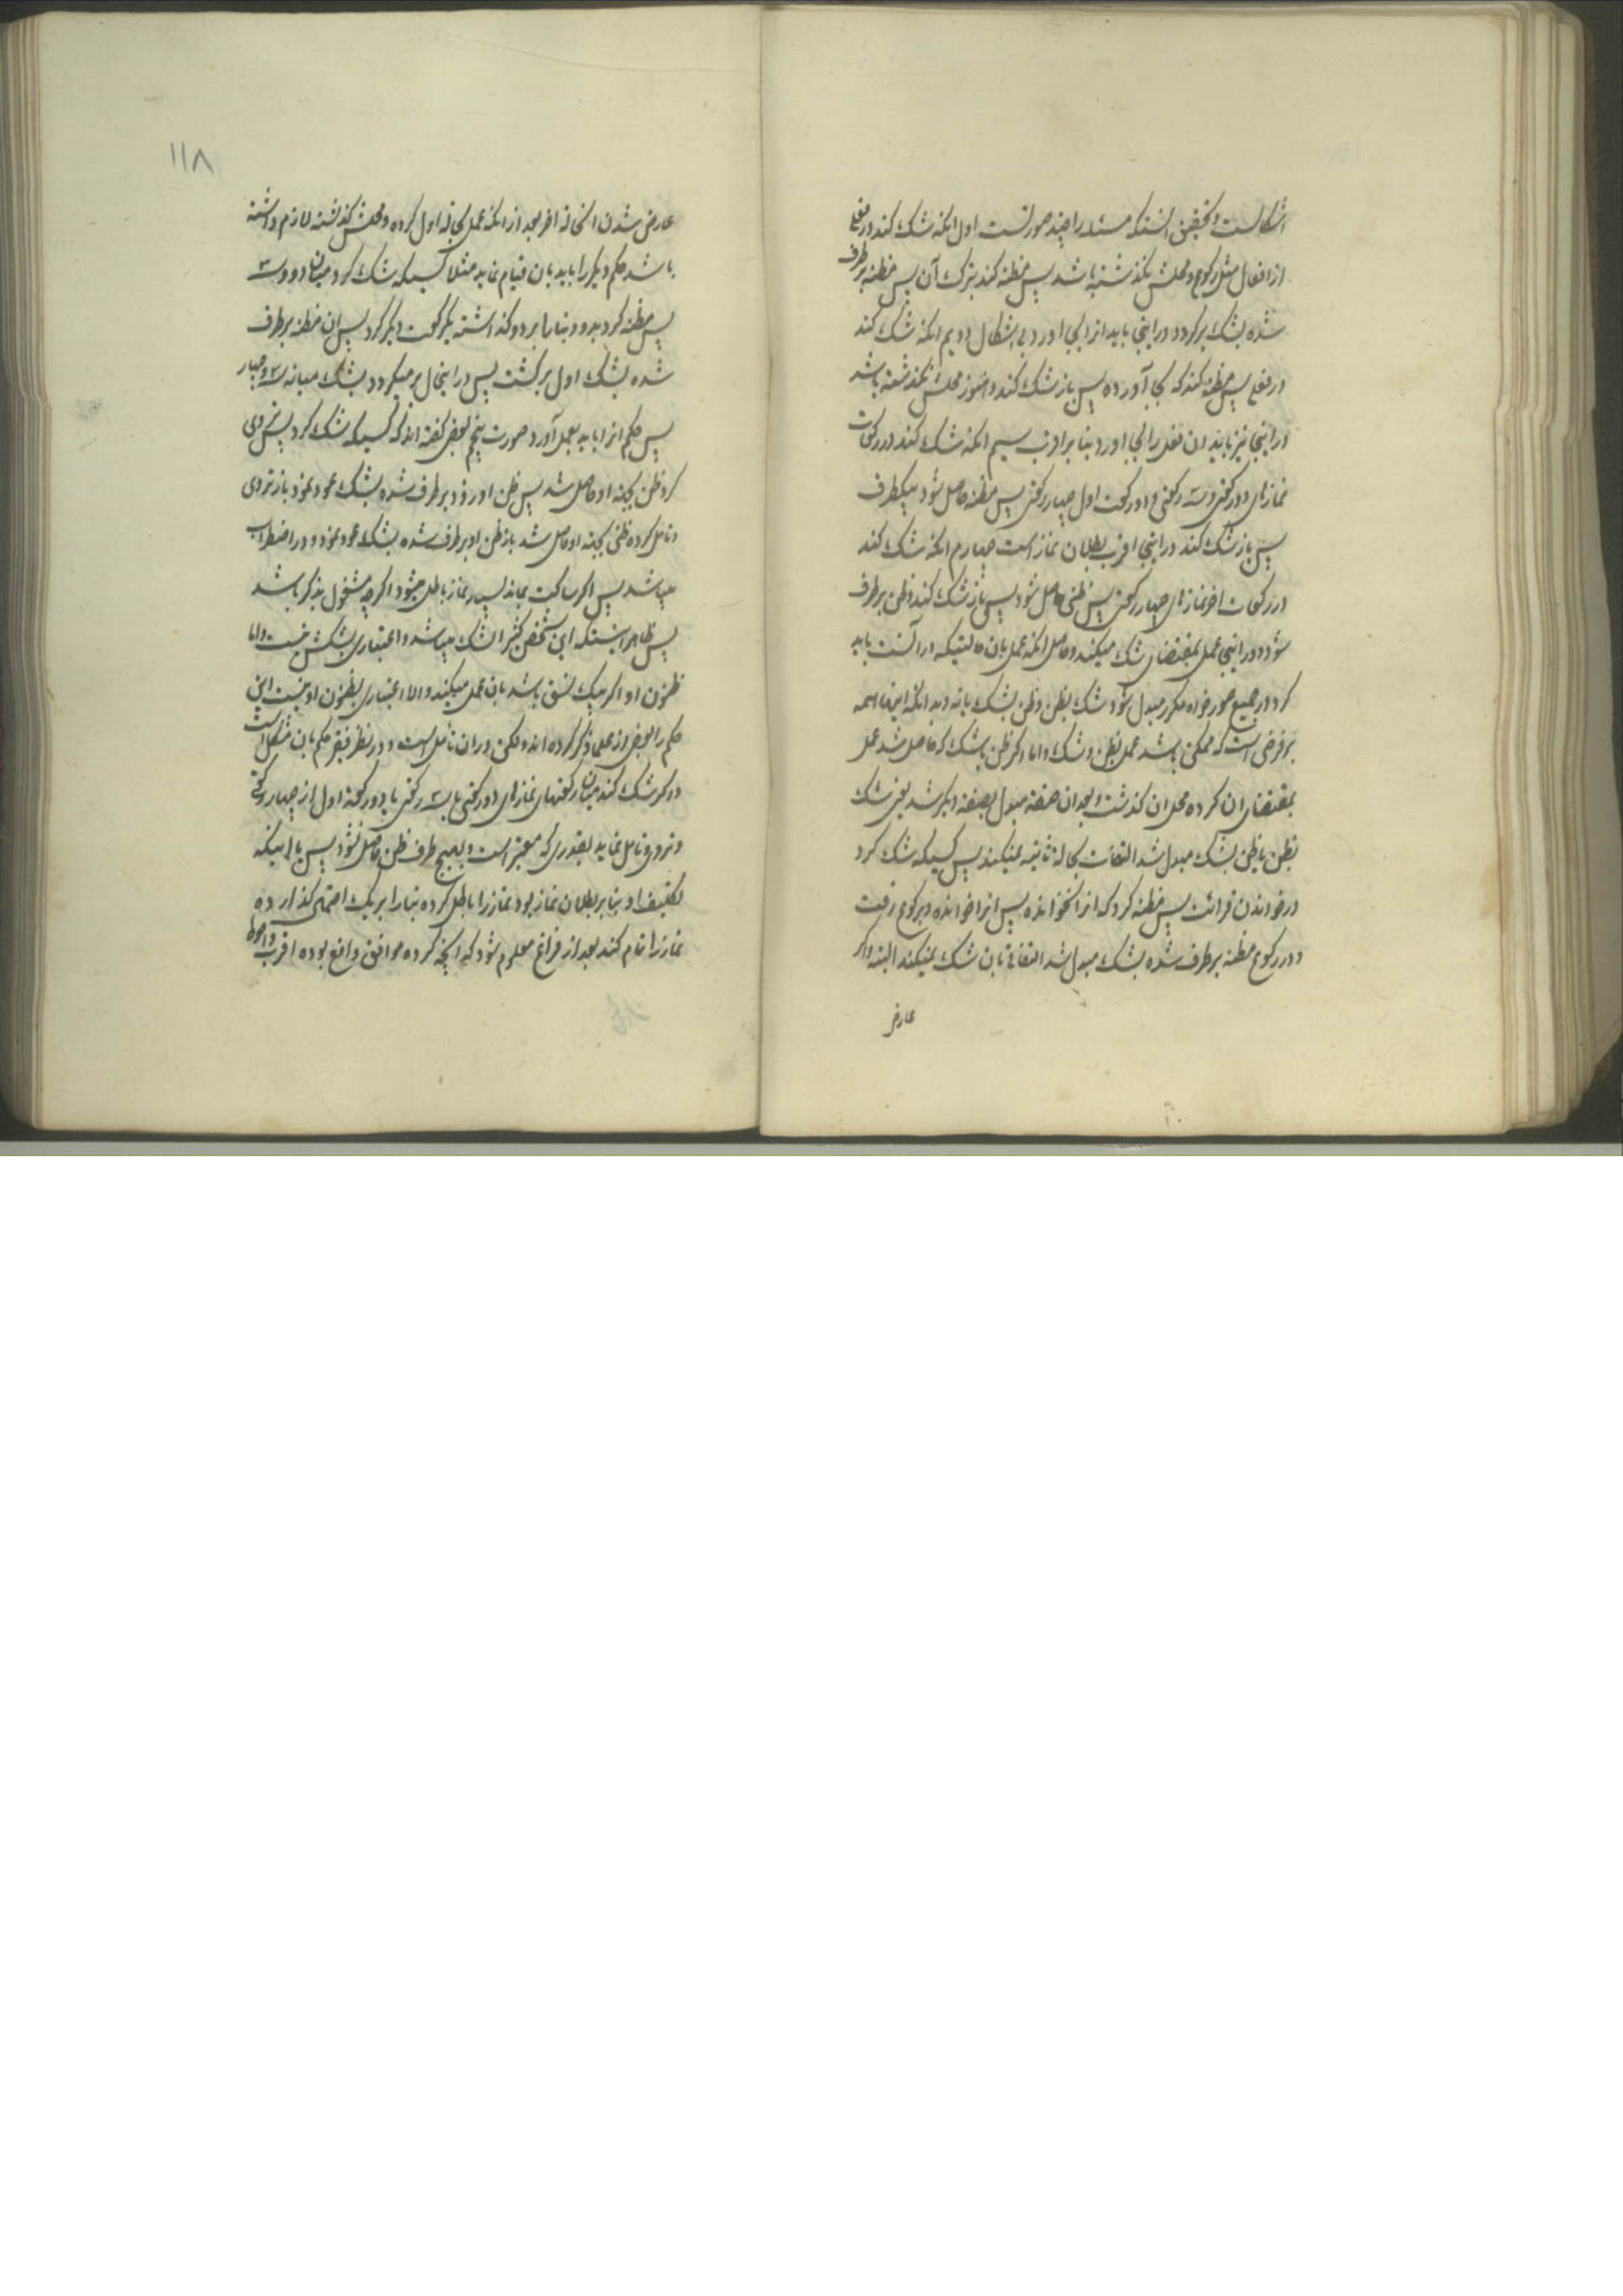 اشکالست و تحقیق اینستکه مسئله را چند صورتست اول انکه شک کند در فعلی
از افعال مثل رکوع و محلش نکذشته باشد پس مظنه کند بترک آن پس مظنه برطرف
شده بشک برکردد در اینجا باید انرا بجا اورد بی اشکال دویم انکه شک کند
در فعلی پس مظنه کند که بجا آورده پس باز شک کند و هنوز محلش نکذشته باشد
در اینجا نیز باید ان فعل را بجا اورد بنا بر اقرب سیم انکه شک کند در رکعات
نمازهای دو رکعتی و سه رکعتی و دو رکعت اول چهار رکعتی پس مظنه حاصل شود بیکطرف
پس باز شک کند در اینجا اقرب بطلان نماز است چهارم انکه شک کند
در رکعات اخر نمازهای چهار رکعتی پس ظنی حاصل شود پس باز شک کند و ظن برطرف
شود و در اینجا عمل بمقتضای شک میکند و حاصل انکه عمل بان حالتیکه در آنست باید
کرد در جمیع صور خواه مکرر مبدل شود شک بظن و ظن بشک یا نه و بدانکه اینها همه
بر فرضی است که ممکن باشد عمل بظن و شک و اما اکر ظن یا شک که حاصل شد عمل
بمقتضای ان کرده محل ان کذشت و بعد ان صفت مبدل بصفت دیکر شد یعنی شک
بظن یا ظن بشک مبدل شد التفات بحالة ثانیه نمیکند پس کسیکه شک کرد
در خواندن قرائت پس مظنه کرد که انرا نخوانده پس انرا خوانده و برکوع رفت
و در رکوع مظنه برطرف شده بشک مبدل شد التفاتی بان شک نمیکند البته و اکر
عارض
١١٨
عارض شدن انحاله اخر بعد از انکه عمل بحالة اول کرده و محلش کذشته لازم داشته
باشد حکم دیکر را باید بان قیام نماید مثلا کسیکه شک کرد میان دو و سه
پس مظنه کرد بدو و بنا را بر دو کذاشته یکرکعت دیکر کرد پس ان مظنه برطرف
شده بشک اول برکشت پس در اینحال برمیکردد بشک میانه سه و چهار
پس حکم انرا باید بعمل آورد صورت پنجم بعضی کفته اند که کسیکه شک کرد پس تروی
کرد ظن بجهته او حاصل شد پس ظن او زود برطرف شده بشک عود نمود باز تروی
و تامل کرده ظنی بجهته او حاصل شد باز ظن او برطرف شده بشک عود نمود و در اضطراب
میباشد پس اکر ساکت بماند بسیار نماز باطل میشود اکرچه مشغول بذکر باشد
پس ظاهر اینستکه این شخص کثیر الشک میباشد و اعتباری بشکش نیست و اما
ظنون او اکر بیک نسق باشد بان عمل میکند و الا اعتباری بظنون او نیست این
حکم را بعضی از علما ذکر کرده اند و لکن در ان تأمل است و در نظر فقیر حکم بان مشکل است
و اکر شک کند میان رکعتهای نمازهای دو رکعتی یا سه رکعتی یا دو رکعت اول از چهار رکعتی
و تروی و تامل نماید بقدری که معتبر است و بهیچ طرف ظن حاصل نشود پس با اینکه
تکلیف او بنا بر بطلان نماز بود نماز را باطل نکرده بنا را بر یک احتمالی کذارده
نماز را تمام کند بعد از فراغ معلوم شود که انچه کرده موافق واقع بوده اقرب و احوط